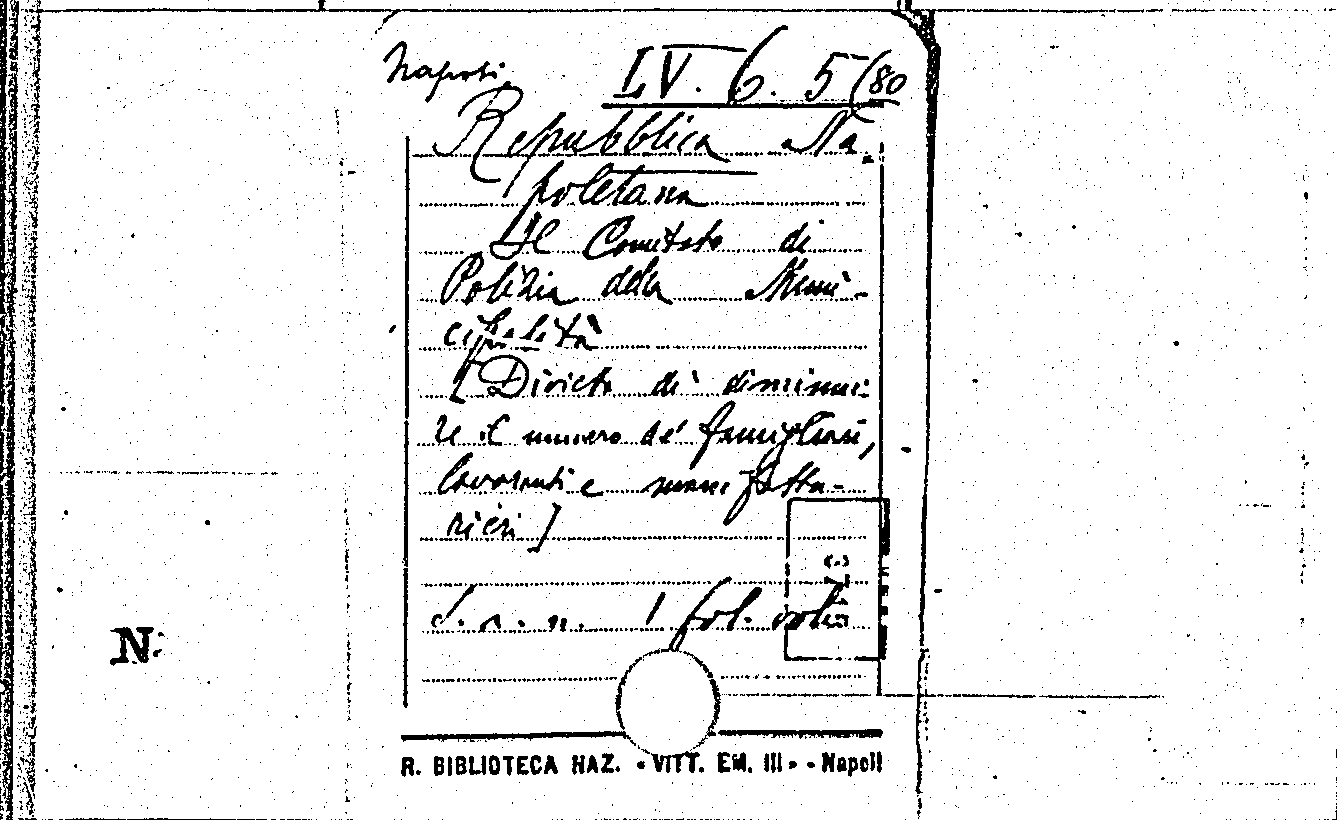 Napoli. LV. 6. 5(80
Repubblica Na-
poletana
Il Comitato di
Polizia della Muni-
cipalità
[Divieto di diminui-
re il numero de' famigliari,
lavoranti e manifattu-
rieri]
S. n. n. 1 fol. vol.
N.
R. BIBLIOTECA NAZ. «VITT. EM. III» - Napoli